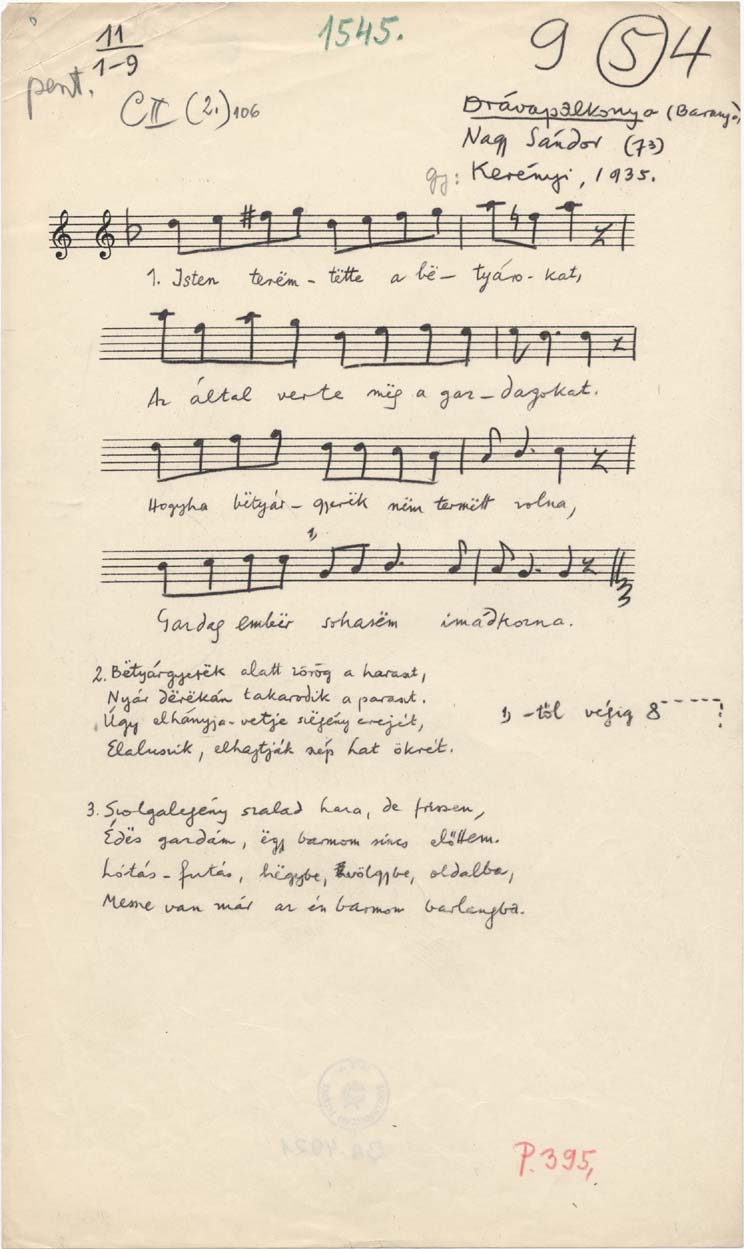 11
1-9
1545.
9 5 4
pent.
CII (2.) 106
Drávapalkonya (Baranya)
Nagy Sándor (73)
gy: Kerényi, 1935.
1. Isten terëm-tëtte a bë-tyáro-kat,
Az által verte mëg a gaz-dagokat.
Hogyha bëtyár-gyerëk nëm termëtt volna,
1)
Gazdag embër sohasëm imádkozna.
3
2. Bëtyárgyerëk alatt zörög a haraszt,
Nyár dërëkán takarodik a paraszt.
Úgy elhányja-vetje szëgény erejét,
Elaluszik, elhajtják szép hat ökrét.
1) -től végig 8
3. Szolgalegény szalad haza, de frissen,
Édës gazdám, ëgy barmom sincs előttem.
Lótás-futás, hëgybe, völgybe, oldalba,
Messe van már az én barmom barlangba.
P. 395,